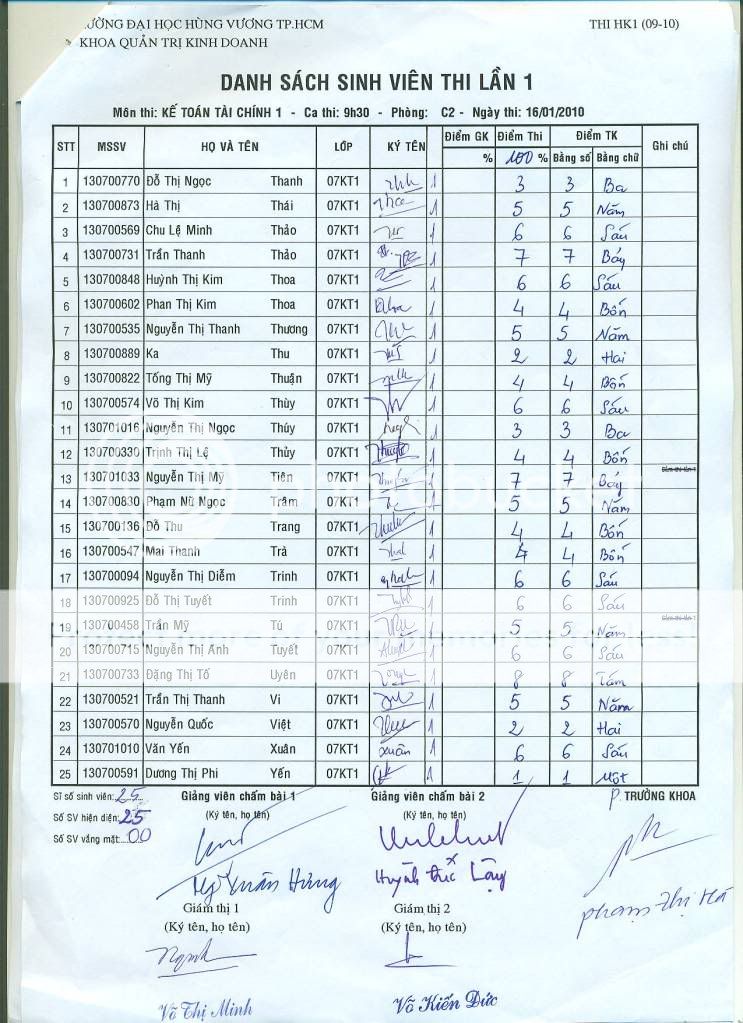 ƯỜNG ĐẠI HỌC HÙNG VƯƠNG TP.HCM THI HK1 (09-10)
KHOA QUẢN TRỊ KINH DOANH
DANH SÁCH SINH VIÊN THI LẦN 1
Môn thi: KẾ TOÁN TÀI CHÍNH 1 - Ca thi: 9h30 - Phòng: C2 - Ngày thi: 16/01/2010
STT MSSV HỌ VÀ TÊN LỚP KÝ TÊN Điểm GK Điểm Thi Điểm TK Ghi chú
% 100 % Bằng số Bằng chữ
1 130700770 Đỗ Thị Ngọc Thanh 07KT1 1 3 3 Ba
2 130700873 Hà Thị Thái 07KT1 1 5 5 Năm
3 130700569 Chu Lệ Minh Thảo 07KT1 1 6 6 Sáu
4 130700731 Trần Thanh Thảo 07KT1 1 7 7 Bảy
5 130700848 Huỳnh Thị Kim Thoa 07KT1 1 6 6 Sáu
6 130700602 Phan Thị Kim Thoa 07KT1 1 4 4 Bốn
7 130700535 Nguyễn Thị Thanh Thương 07KT1 1 5 5 Năm
8 130700889 Ka Thu 07KT1 1 2 2 Hai
9 130700822 Tống Thị Mỹ Thuận 07KT1 1 4 4 Bốn
10 130700574 Võ Thị Kim Thùy 07KT1 1 6 6 Sáu
11 130701016 Nguyễn Thị Ngọc Thúy 07KT1 1 3 3 Ba
12 130700330 Trịnh Thị Lệ Thủy 07KT1 1 4 4 Bốn
13 130701033 Nguyễn Thị Mỹ Tiên 07KT1 1 7 7 Bảy
14 130700830 Phạm Nữ Ngọc Trâm 07KT1 1 5 5 Năm
15 130700136 Đỗ Thu Trang 07KT1 1 4 4 Bốn
16 130700547 Mai Thanh Trà 07KT1 1 4 4 Bốn
17 130700094 Nguyễn Thị Diễm Trinh 07KT1 1 6 6 Sáu
18 130700925 Đỗ Thị Tuyết Trinh 07KT1 1 6 6 Sáu
19 130700458 Trần Mỹ Tú 07KT1 1 5 5 Năm
20 130700715 Nguyễn Thị Ánh Tuyết 07KT1 1 6 6 Sáu
21 130700733 Đặng Thị Tố Uyên 07KT1 1 8 8 Tám
22 130700521 Trần Thị Thanh Vi 07KT1 1 5 5 Năm
23 130700570 Nguyễn Quốc Việt 07KT1 1 2 2 Hai
24 130701010 Văn Yến Xuân 07KT1 xuân 1 6 6 Sáu
25 130700591 Dương Thị Phi Yến 07KT1 1 1 1 Một
Sĩ số sinh viên: 25 Giảng viên chấm bài 1 Giảng viên chấm bài 2 P. TRƯỞNG KHOA
Số SV hiện diện: 25 (Ký tên, họ tên) (Ký tên, họ tên)
Số SV vắng mặt: 00
Ng Xuân Hưng Huỳnh Đức Lộng
Phạm Thị Hà
Giám thị 1 Giám thị 2
(Ký tên, họ tên) (Ký tên, họ tên)
Võ Thị Minh Võ Kiến Đức